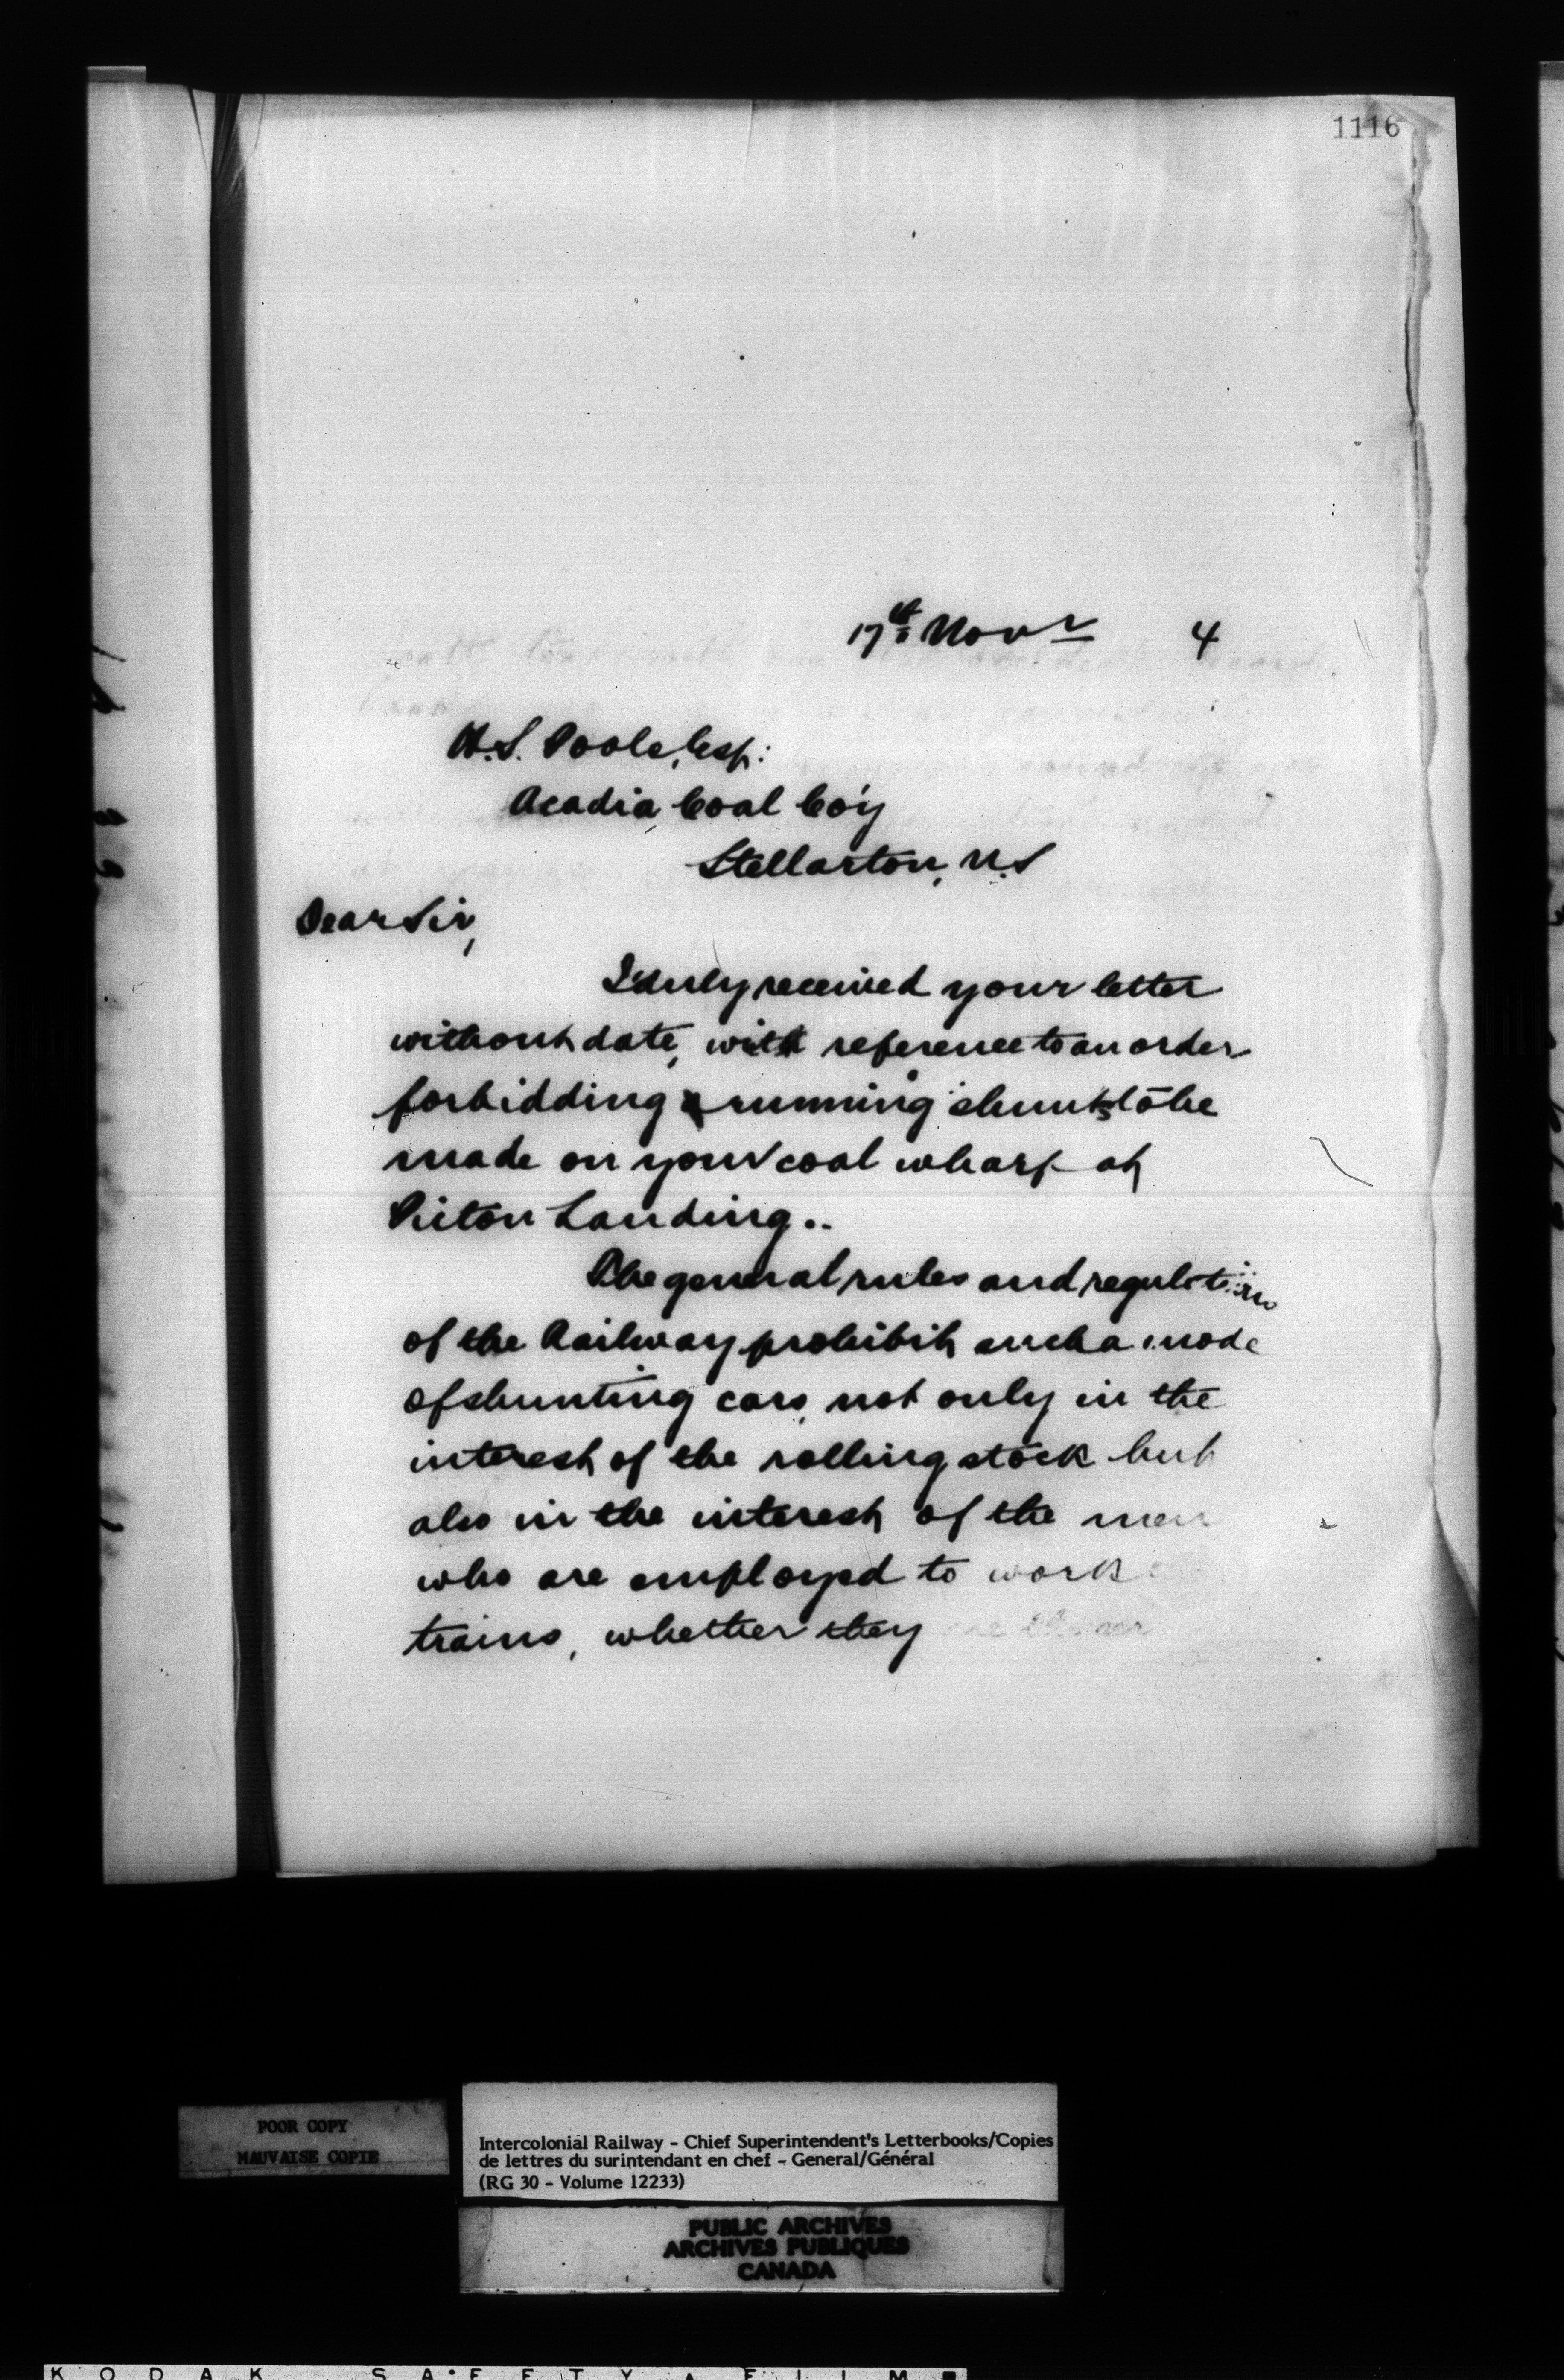 1116
17th Novr 4
H.S. Poole, Esq:
Acadia Coal Co'y
Stellarton, N.S
Dear Sir,
I duly received your letter
without date, with reference to an order
forbidding running shunts to be
made on your coal wharf at
Pictou Landing..
The general rules and regulations
of the Railway prohibit such a mode
of shunting cars, not only in the
interest of the rolling stock but
also in the interest of the men
who are employed to work
trains, whether they are the
POOR COPY
MAUVAISE COPIE
Intercolonial Railway - Chief Superintendent's Letterbooks/Copies
de lettres du surintendant en chef - General/Général
(RG 30 - Volume 12233)
PUBLIC ARCHIVES
ARCHIVES PUBLIQUES
CANADA
KODAK SAFETY FILM